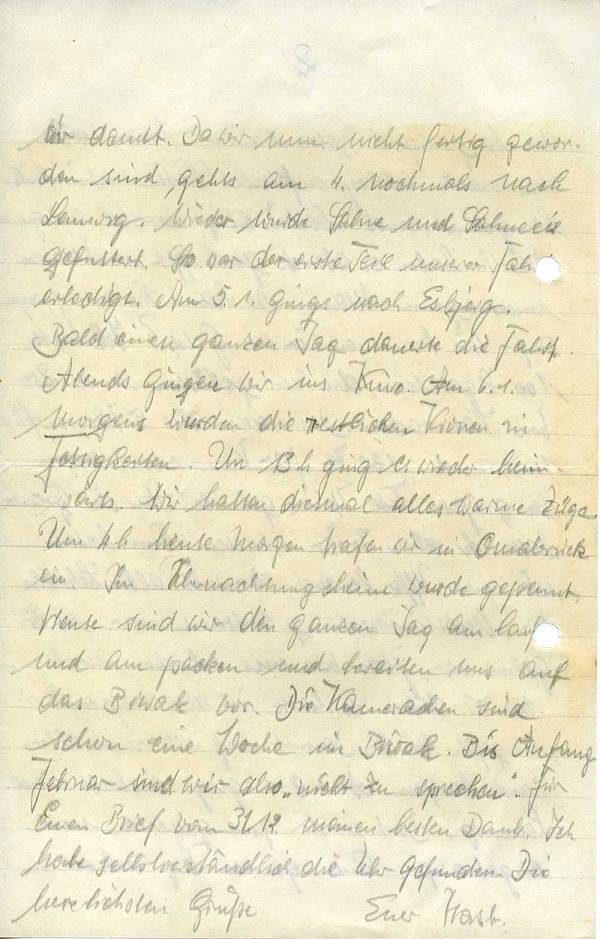 wir damit. Da wir nun nicht fertig gewor-
den sind gehts am 4. nochmals nach
Lemvig. Wieder wurde Sahne und
gefuttert. So war der erste Teil unserer Fahrt
erledigt. Am 5.1. gings nach Esbjerg.
Bald einen ganzen Tag dauerte die Fahrt.
Abends gingen wir ins Kino. Am 6.1.
morgens wurden die restlichen Kronen in
Um 13 h ging es wieder heim-
wärts. Wir hatten diesmal alles warme Züge.
Um 4 h heute Morgen trafen wir in Osnabrück
ein. Im Übernachtungsheim wurde gepennt.
Heute sind wir den ganzen Tag am
und am packen und bereiten uns auf
das Biwak vor. Die Kameraden sind
schon eine Woche im Biwak. Bis Anfang
Februar sind wir also „nicht zu sprechen". Für
Euren Brief vom 31.12. meinen besten Dank. Ich
habe selbstverständlich die Uhr gefunden. Die
herzlichsten Grüße Euer